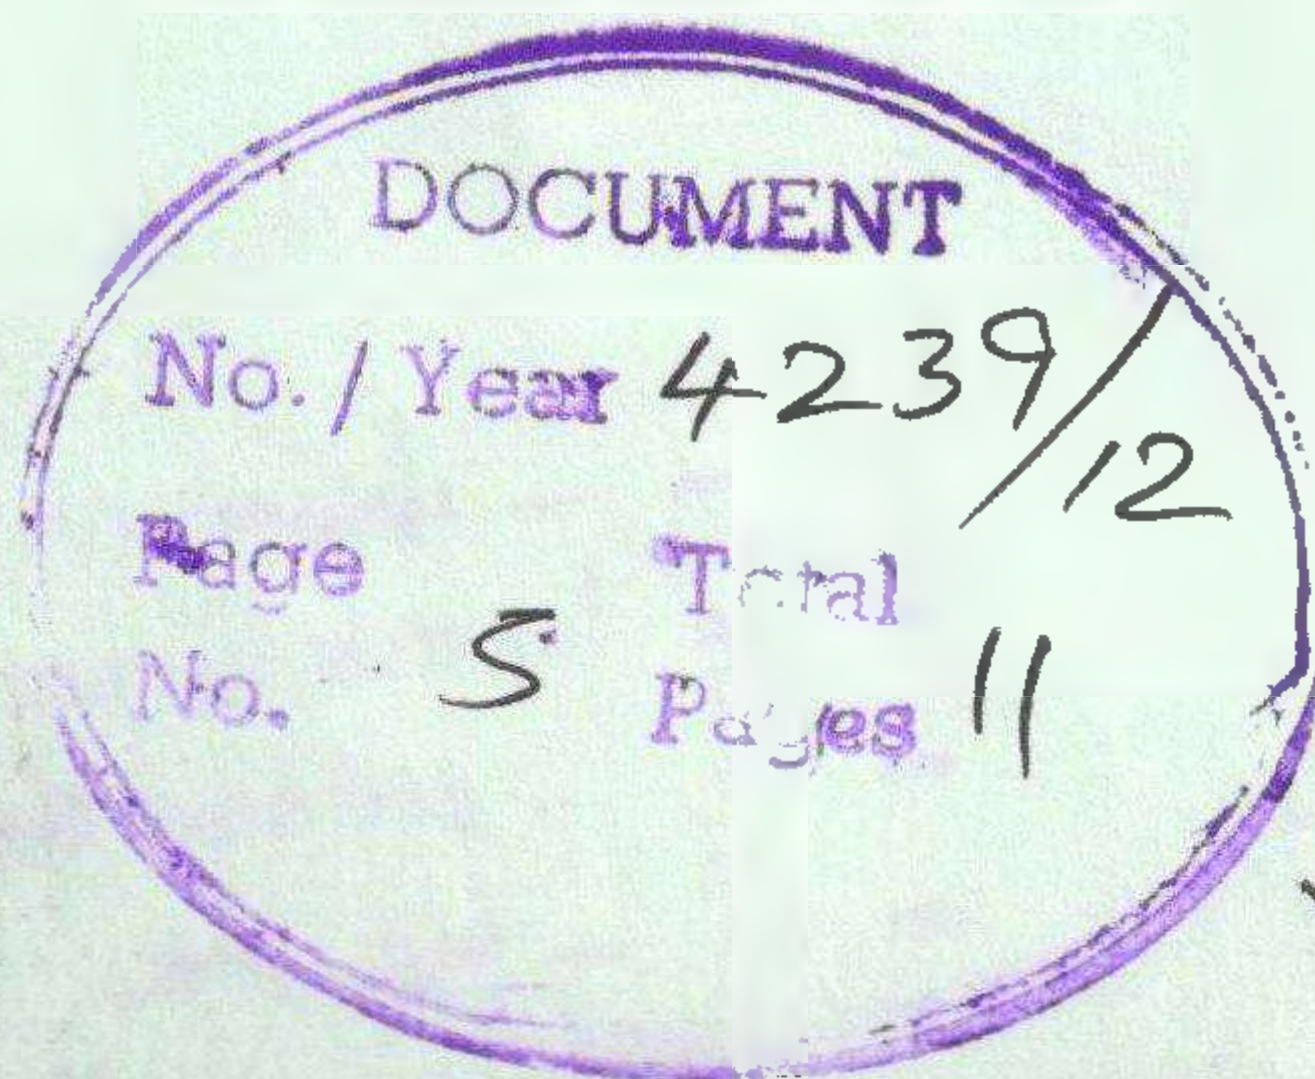 DOCUMENT
No. / Year 4239/12
Page Total
No. 5 Pages 11